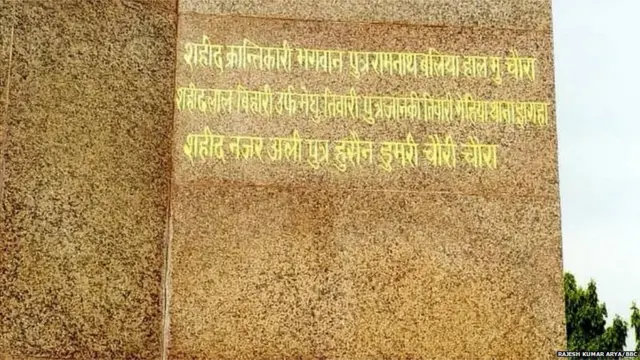 शहीद क्रान्तिकारी भगवान पुत्र रामनाथ बलिया हाल मु चौरा
शहीद लाल बिहारी उर्फ मेघु तिवारी पुत्र जानकी तिवारी थाना झगहा
शहीद नजर अली पुत्र हुसैन डुमरी चौरी चौरा
RAJESH KUMAR ARYA/BBC